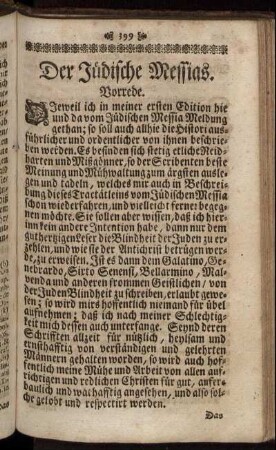 199
Der Jüdische Messias.
Vorrede.
DJeweil ich in meiner ersten Edition hie
und da vom Jüdischen Messia Meldung
gethan; so soll auch allhie die Histori aus-
führlicher und ordentlicher von ihnen beschrie-
ben werden. Es befinden sich stetig etliche Neid-
harten und Mißgönner, so der Scribenten beste
Meinung und Mühwaltung zum ärgsten ausle-
gen und tadeln, welches mir auch in Beschrei-
bung dieses Tractätleins vom Jüdischen Messia
schon wiederfahren, und vielleicht ferner bege-
gnen möchte. Sie sollen aber wissen, daß ich hier-
inn kein andere Intention habe, dann nur dem
gutherzigen Leser die Blindheit der Juden zu er-
zehlen, und wie sie der Antichrist betrügen wer-
de, zu erweisen. Ist es dann dem Galatino, Ge-
nebrardo, Sixto Senensi, Bellarmino, Mal-
venda und anderen frommen Geistlichen, von
der Juden Blindheit zu schreiben, erlaubt gewe-
sen; so wird mirs hoffentlich niemand für übel
aufnehmen; daß ich nach meiner Schlechtig-
keit mich dessen auch unterfange. Seynd deren
Schrifften allzeit für nützlich, heylsam und
ruhmhafftig von verständigen und gelehrten
Männern gehalten worden, so wird auch hof-
fentlich meine Mühe und Arbeit von allen auf-
richtigen und redlichen Christen für gut, aufer-
baulich und wahhafftig angesehen, und also sol-
che gelobt und respectirt werden.
Das